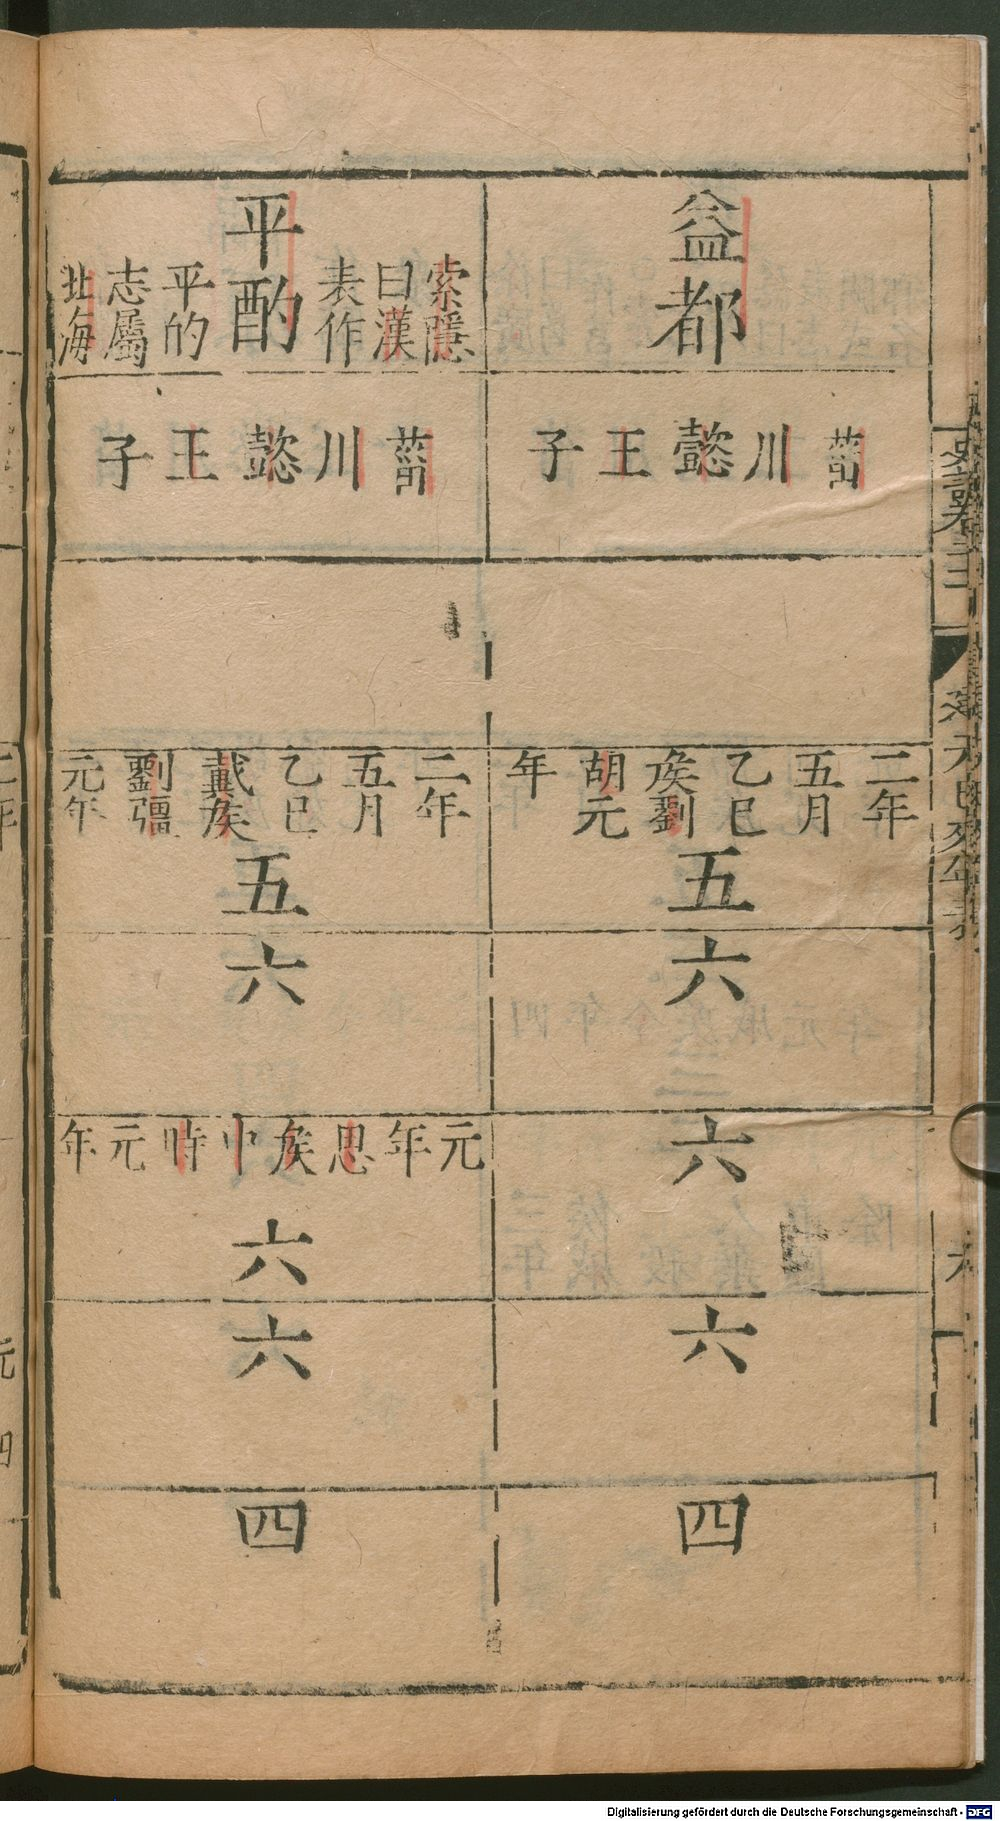 益都
菑川懿王子
二年
五月
乙巳
矦劉
胡元
年
五
六
六
六
四
平酌
索隱
曰漢
表作
平的
志屬
北海
菑川懿王子
二年
五月
乙巳
戴矦
劉彊
元年
五
六
元年思矦中時元年
六
六
四
Digitalisierung gefördert durch die Deutsche Forschungsgemeinschaft - DFG